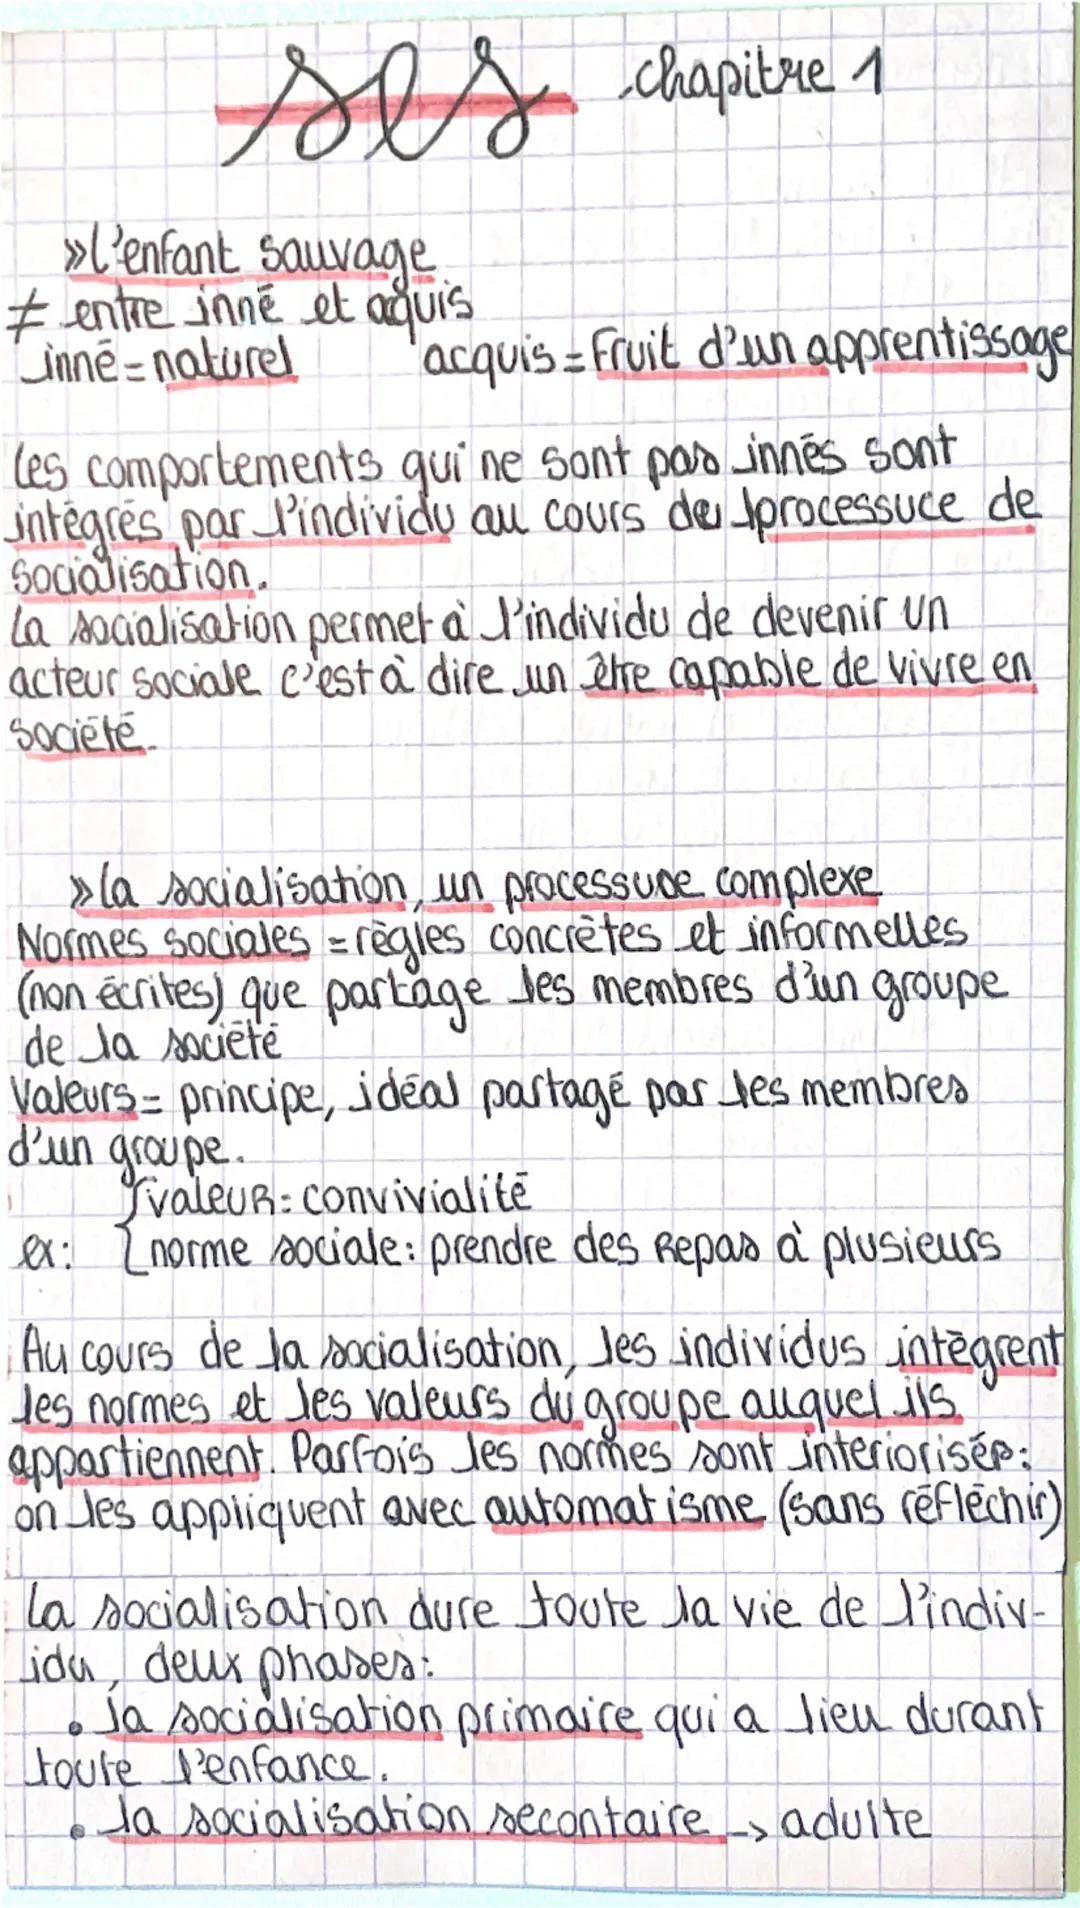 ses chapitre 1
»l'enfant sauvage
≠ entre inné et aquis
inné = naturel acquis = Fruit d'un apprentissage
les comportements qui ne sont pas innés sont
intégrés par l'individu au cours de processuce de
socialisation.
la socialisation permet à l'individu de devenir un
acteur sociale c'est à dire un être capable de vivre en
société.
»la socialisation, un processuce complexe
Normes sociales = règles concrètes et informelles
(non écrites) que partage les membres d'un groupe
de la société
Valeurs = principe, idéal partagé par les membres
d'un groupe.
{valeur = convivialité
ex: {norme sociale: prendre des repas à plusieurs
Au cours de la socialisation, les individus intègrent
les normes et les valeurs du groupe auquel ils
appartiennent. Parfois les normes sont interiorisés:
on les appliquent avec automatisme (sans réfléchir)
la socialisation dure toute la vie de l'indiv-
idu, deux phases:
• la socialisation primaire qui a lieu durant
toute l'enfance.
• la socialisation secontaire -> adulte